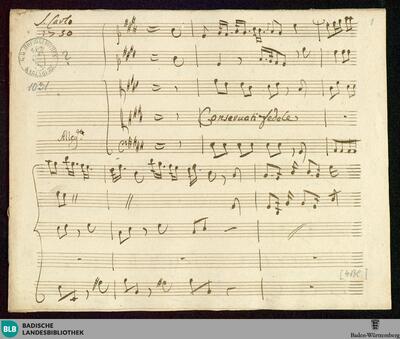 S. Carlo
1750
1031
Conservati fedele
Allegᵗᵗᵒ
1
BLB BADISCHE
LANDESBIBLIOTHEK
Baden-Württemberg